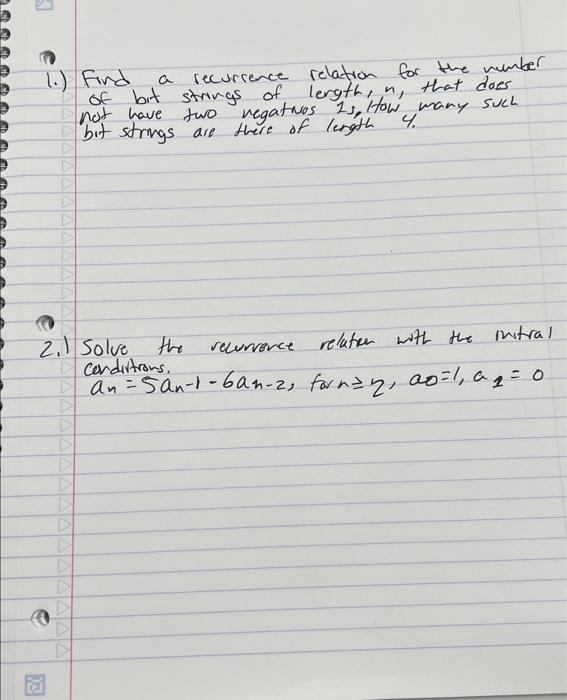 1.) Find a recurrence relation for the number
of bit strings of length, n, that does
not have two negatnos 1s, How many such
bit strings are there of length 4.
2.) Solve the recurrence relation with the initial
conditions.
an = 5an-1 - 6an-2, for n ≥ 2, a0=1, a1 = 0